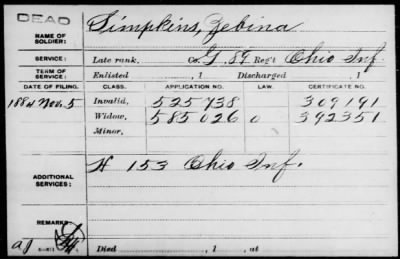 DEAD
NAME OF SOLDIER: Simpkins, Zebina
SERVICE: Late rank, Co. G, 89 Reg't Ohio Inf.
TERM OF SERVICE: Enlisted , 1 Discharged , 1
DATE OF FILING. CLASS. APPLICATION NO. LAW. CERTIFICATE NO.
1884 Nov. 5 Invalid, 525738 309191
Widow, 585026 0 392351
Minor,
ADDITIONAL SERVICES: H 153 Ohio Inf.
REMARKS:
Died , 1 , at